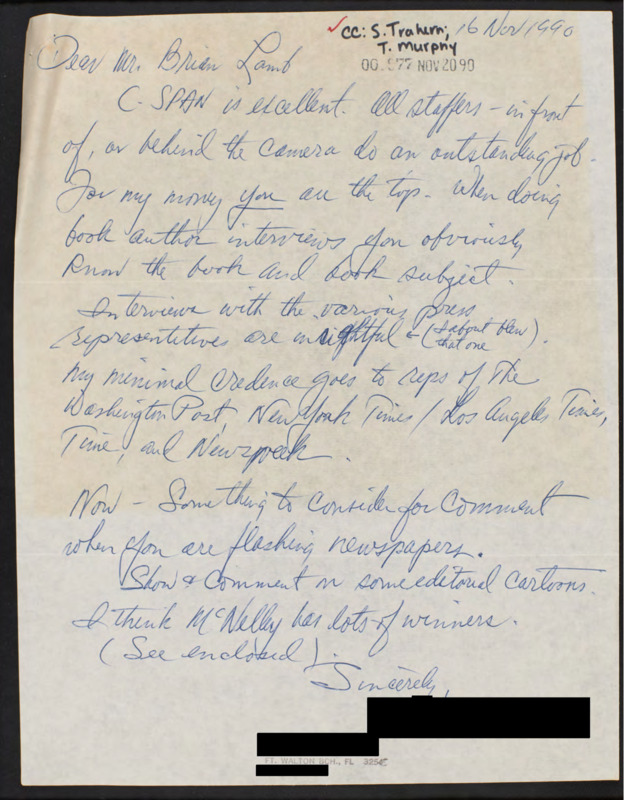 ✓ CC: S. Trahern; 16 Nov 1990
T. Murphy
00.977 NOV 20 90
Dear Mr. Brian Lamb
C-SPAN is excellent. All staffers - in front
of, or behind the camera do an outstanding job.
For my money you are the top. When doing
book author interviews you obviously
know the book and book subject.
Interviews with the various press
representitives are insightful - (I about blew that one).
My minimal credence goes to reps of the
Washington Post, New York Times / Los Angeles Times,
Time, and Newsweek.
Now - Something to consider for comment
when you are flashing newspapers.
Show & comment on some editorial cartoons.
I think McNelley has lots of winners.
(See enclosed).
Sincerely,
FT. WALTON BCH., FL